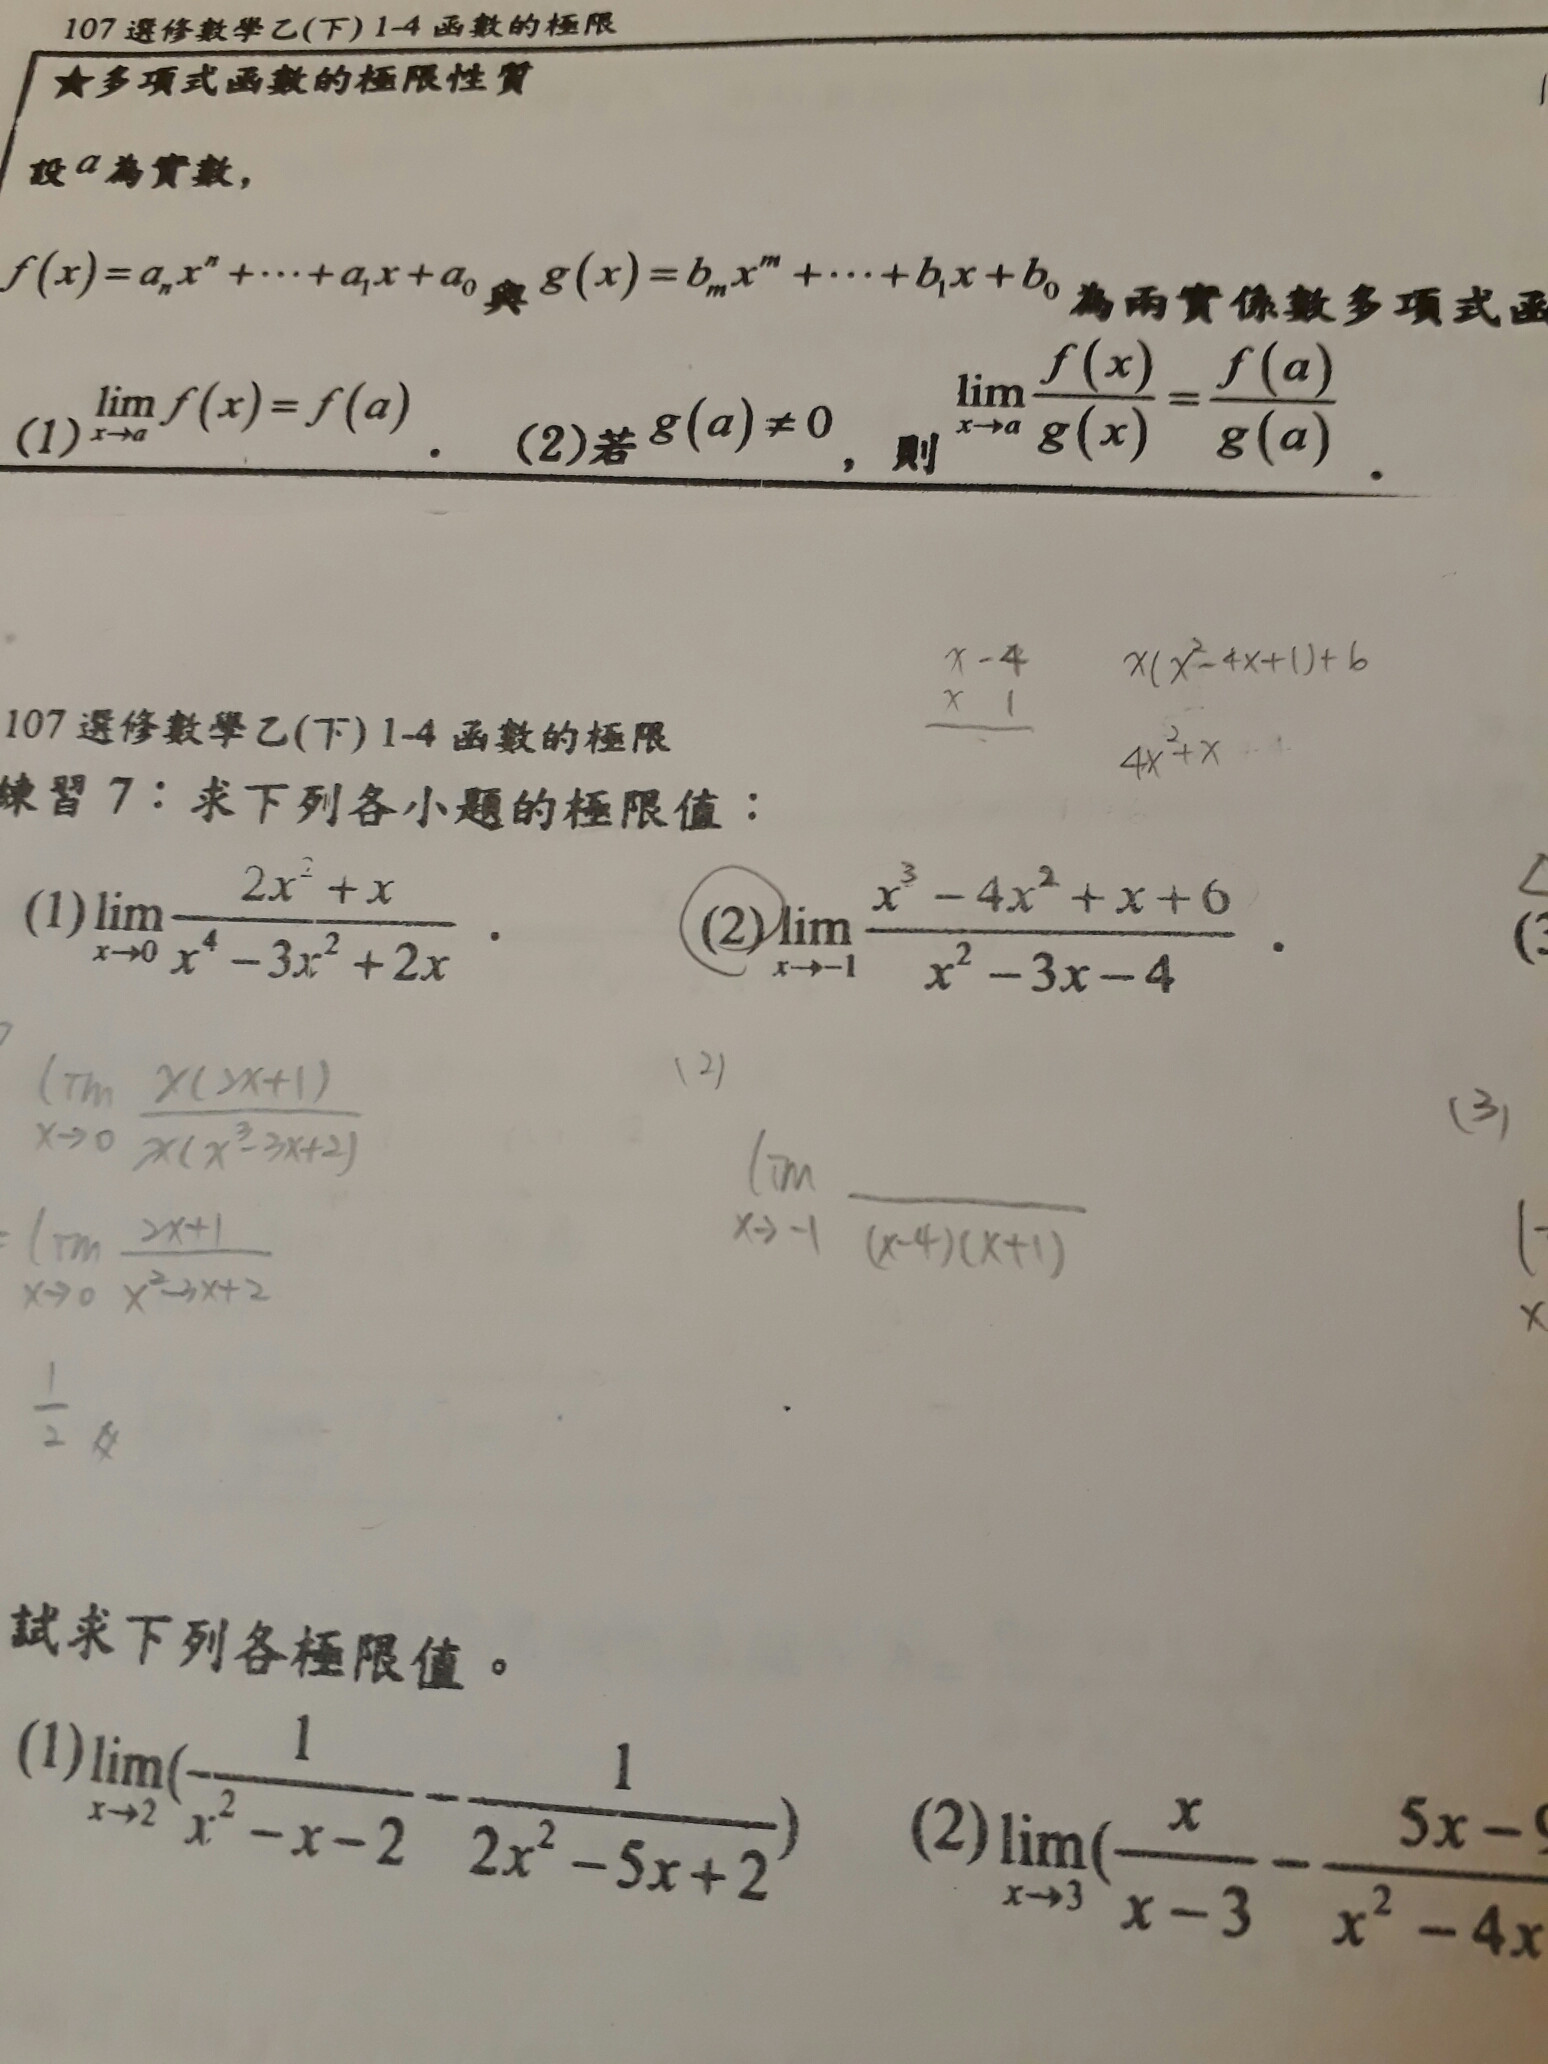 107 選修數學乙(下) 1-4 函數的極限
★多項式函數的極限性質
設 a 為實數,
f(x)=aₙxⁿ+⋯+a₁x+a₀ 與 g(x)=bₘxᵐ+⋯+b₁x+b₀ 為兩實係數多項式函
(1) lim_{x→a} f(x)=f(a) . (2)若 g(a)≠0 , 則 lim_{x→a} f(x)/g(x) = f(a)/g(a) .
x -4 x(x²-4x+1)+6
x 1
4x²+x
107 選修數學乙(下) 1-4 函數的極限
練習 7：求下列各小題的極限值：
(1) lim_{x→0} (2x²+x)/(x⁴-3x²+2x) . (2) lim_{x→-1} (x³-4x²+x+6)/(x²-3x-4) . (3
(2) (3)
lim_{x→0} x(2x+1)/x(x³-3x+2)
lim_{x→-1} /(x-4)(x+1)
= lim_{x→0} (2x+1)/(x²-3x+2)
1/2
試求下列各極限值。
(1) lim_{x→2} (1/(x²-x-2) - 1/(2x²-5x+2)) (2) lim_{x→3} (x/(x-3) - (5x-9/(x²-4x